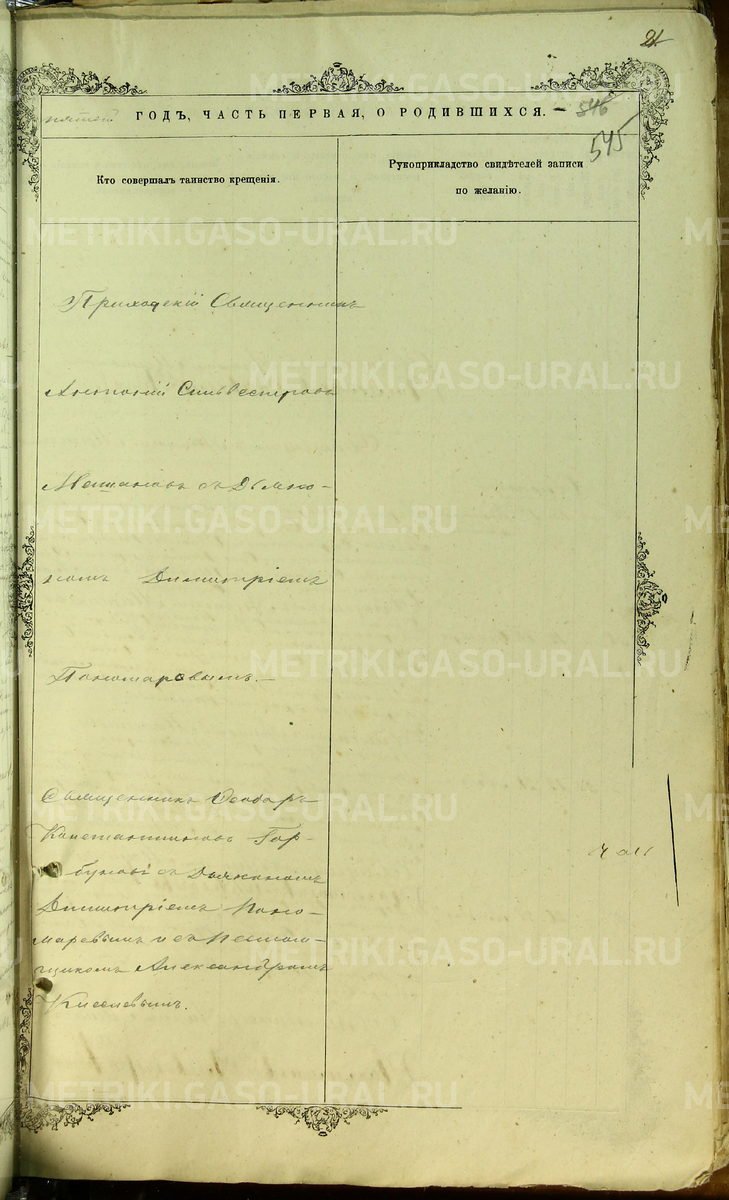 21
пятый ГОДЪ, ЧАСТЬ ПЕРВАЯ, О РОДИВШИХСЯ. — 546
545
Кто совершалъ таинство крещенія.
Рукоприкладство свидѣтелей записи
по желанію.
METRIKI.GASO-URAL.RU
Приходскій Священникъ
Антоній Сильвестровъ
съ Діако-
номъ Димитріемъ
Пономаревымъ.—
Священникъ Ѳеодоръ
Константиновъ Гор-
буновъ съ Діакономъ
Димитріемъ Поно-
маревымъ и съ Псалом-
щикомъ Александромъ
Киселевымъ.